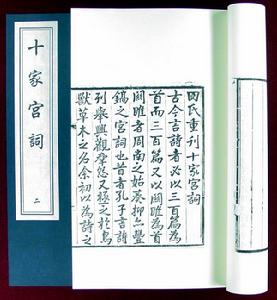 十家宮詞
二
田氏重刊十家宮詞
古今言詩者必以三百篇為
首而三百篇又以關雎為首
關雎者周南之始養抑亦豐
鎬之宮詞也昔者孔子言詩
列舉興觀羣怨又極之於鳥
獸草木之名余初以為詩之